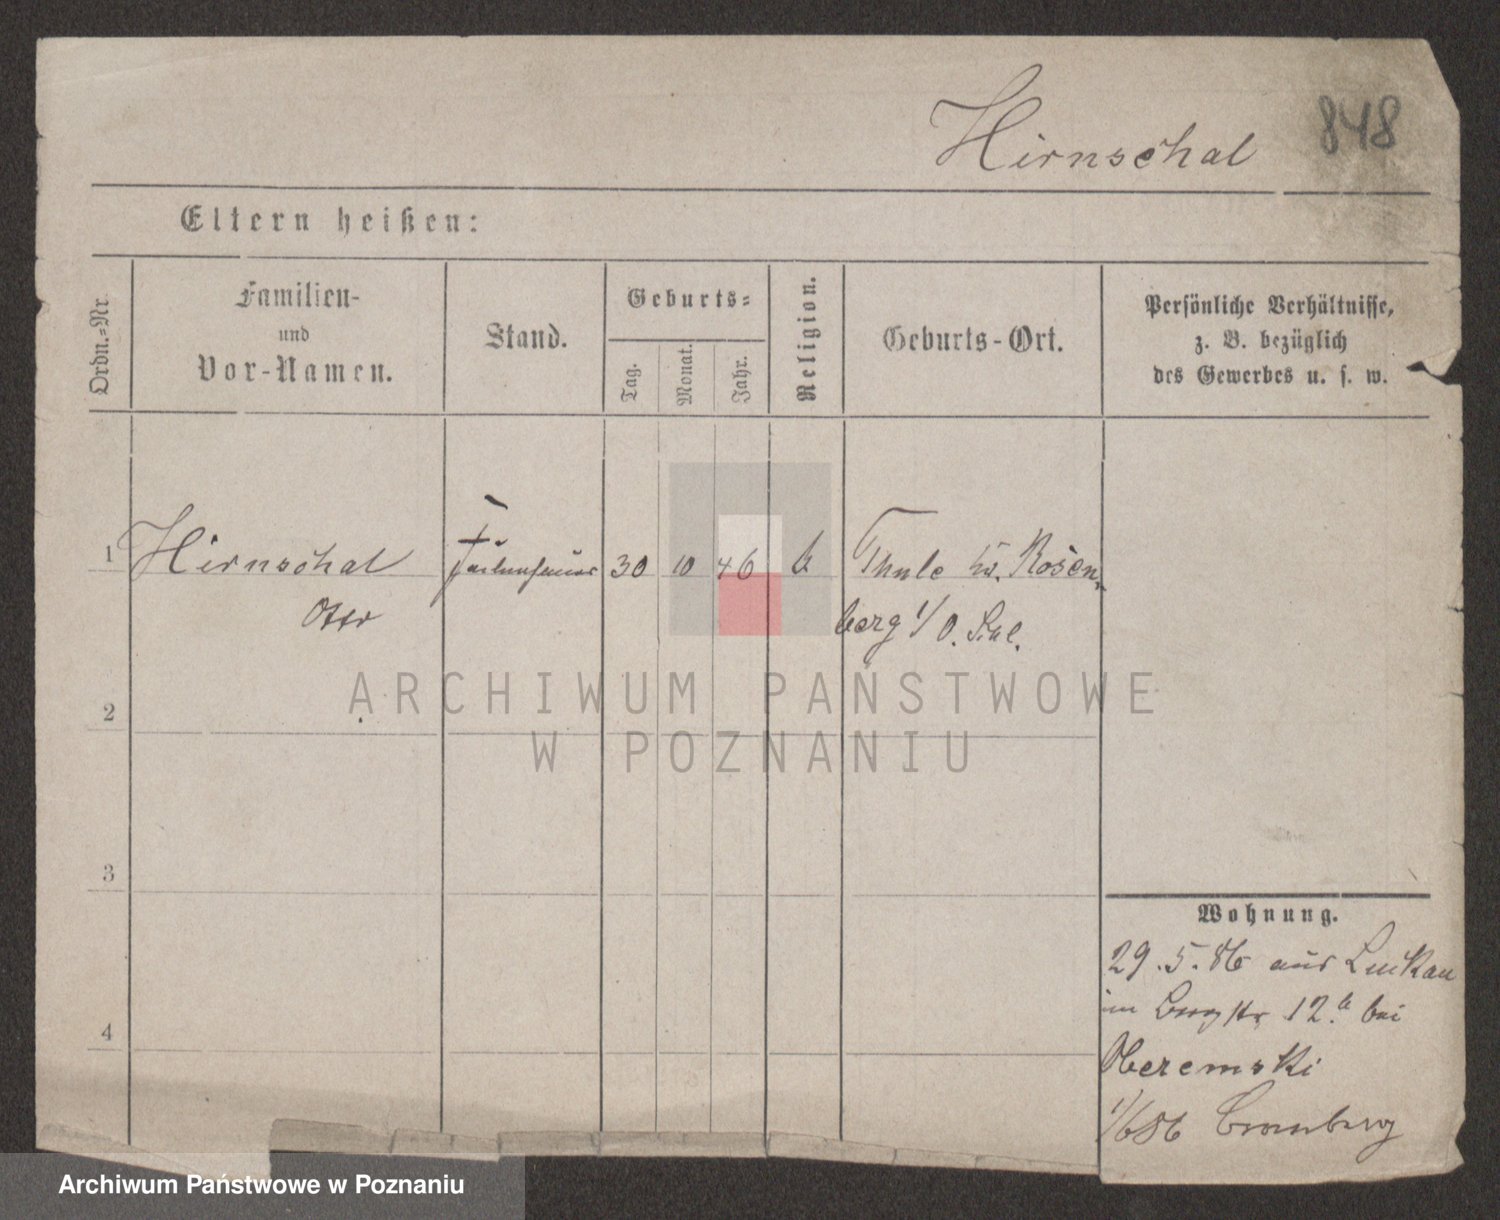 Hirnschal 848
Eltern heißen:
Ordn.-Nr.
Familien-
und
Vor-Namen.
Stand.
Geburts-
Tag.
Monat.
Jahr.
Religion.
Geburts-Ort.
Persönliche Verhältnisse,
z. B. bezüglich
des Gewerbes u. s. w.
1 Hirnschal 30 10 46 Thule Rosen-
Otto berg
2
3
4
Wohnung.
29.5.86 aus Luckau
im Bergstr 12. bei
Oberemski
1/6 86 Bromberg
ARCHIWUM PAŃSTWOWE
W POZNANIU
Archiwum Państwowe w Poznaniu